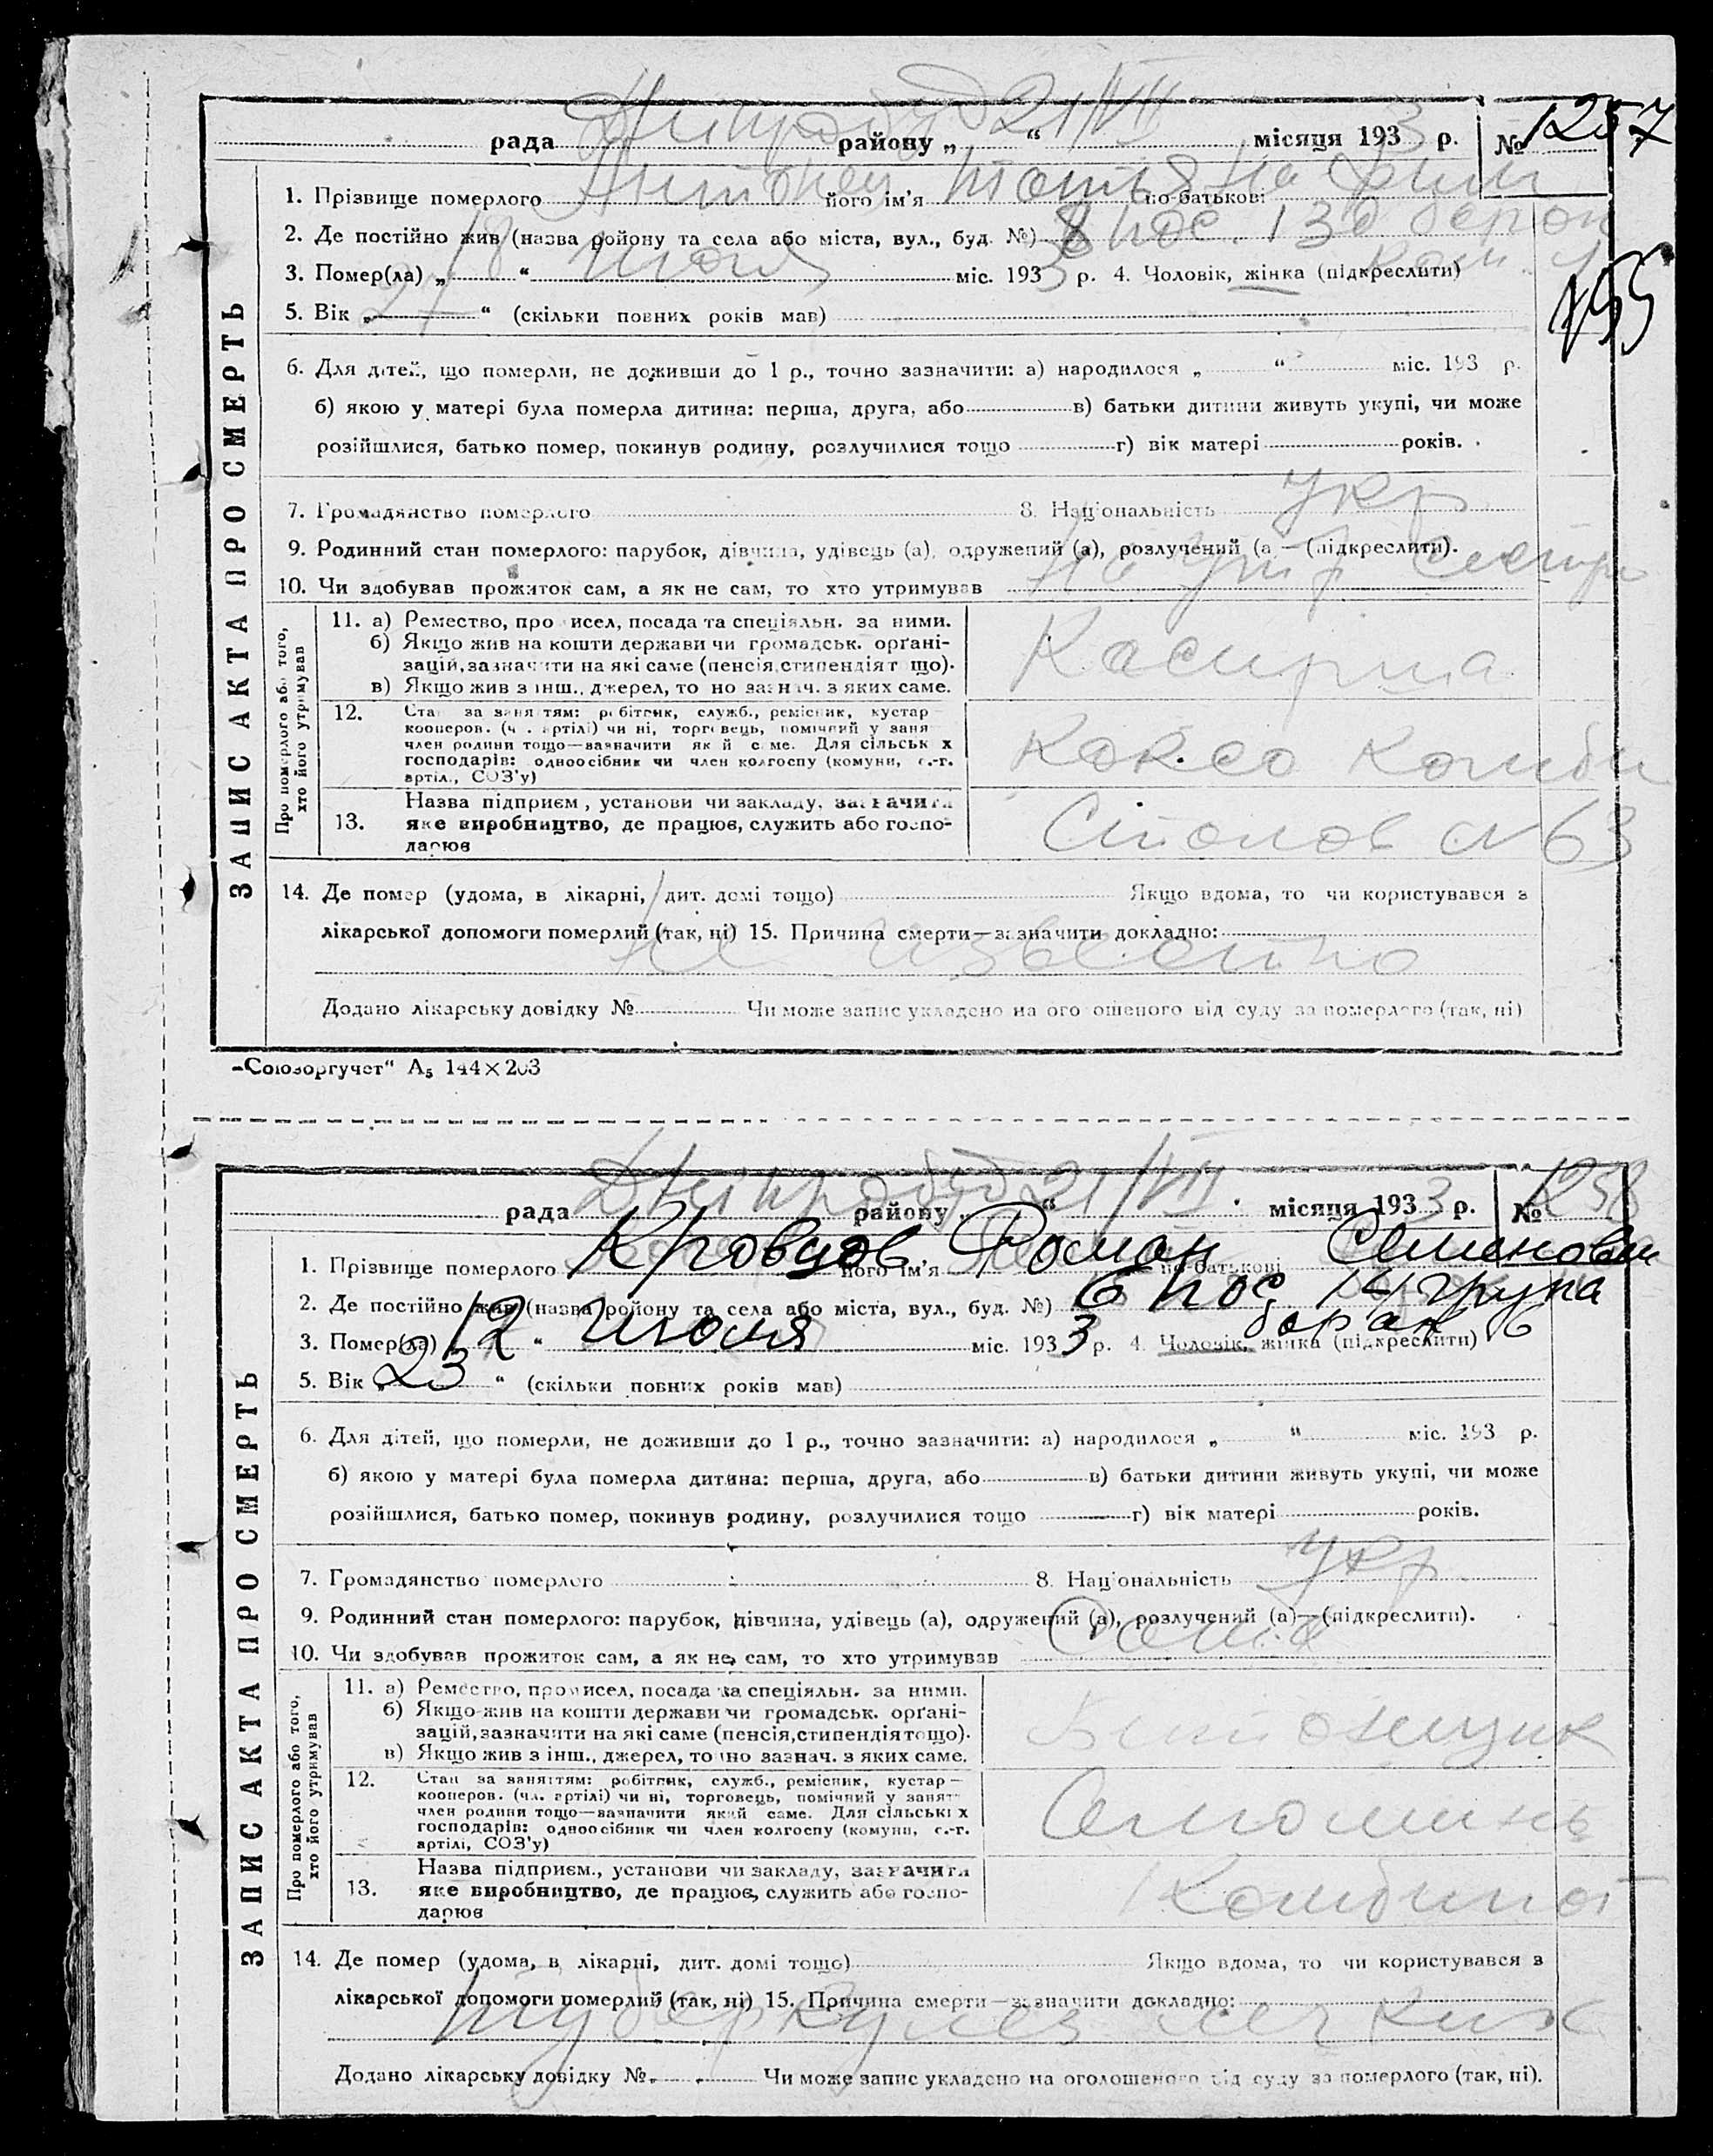 рада Дніпробуд району „ 21/VII “ місяця 1933 р. № 1257
1. Прізвище померлого його ім'я по-батькові
2. Де постійно жив (назва району та села або міста, вул., буд. №) 8 пос. 130
3. Помер(ла) „18“ июля міс. 1933 р. 4. Чоловік, жінка (підкреслити)
5. Вік „27“ (скільки повних років мав)
6. Для дітей, що померли, не доживши до 1 р., точно зазначити: а) народилося „ “ міс. 193 р.
б) якою у матері була померла дитина: перша, друга, або в) батьки дитини живуть укупі, чи може
розійшлися, батько помер, покинув родину, розлучилися тощо г) вік матері років.
7. Громадянство померлого 8. Національність укр
9. Родинний стан померлого: парубок, дівчина, удівець (а), одружений (а), розлучений (а — (підкреслити).
10. Чи здобував прожиток сам, а як не сам, то хто утримував
ЗАПИС АКТА ПРО СМЕРТЬ
Про померлого або того, хто його утримував
11. а) Ремество, про исел, посада та спеціяльн. за ними.
б) Якщо жив на кошти держави чи громадськ. орґані-
зацій, зазначити на які саме (пенсія, стипендія т що).
в) Якщо жив з інш., джерел, то но зазнач. з яких саме.
Касирша
12. Стан за заняттям: робітник, служб., ремісник, кустар —
кооперов. (ч . артілі) чи ні, торговець, помічний у заня
член родини тощо—зазначити як й саме. Для сільськ х
господарів: одноосібник чи член колгоспу (комуни, с.-г.
артіл., СОЗ'у)
Коксо Комби
13. Назва підприєм , установи чи закладу, зазначити
яке виробництво, де працює, служить або госпо-
дарює
Столов № 63
14. Де помер (удома, в лікарні, дит. домі тощо) Якщо вдома, то чи користувався з
лікарської допомоги померлий (так, ні) 15. Причина смерти—зазначити докладно:
не известно
Додано лікарську довідку № Чи може запис укладено на ого ошеного від суду за померлого (так, ні)
„Союзоргучет“ А5 144×203
рада Дніпробуд району „ 21/VII “ місяця 1933 р. № 1258
1. Прізвище померлого Кровцов його ім'я Роман по-батькові Семенович
2. Де постійно жив (назва району та села або міста, вул., буд. №) 6 пос 14 група
барак 6
3. Помер(ла) „12“ июля міс. 1933 р. 4. Чоловік, жінка (підкреслити)
5. Вік „23“ (скільки повних років мав)
6. Для дітей, що померли, не доживши до 1 р., точно зазначити: а) народилося „ “ міс. 193 р.
б) якою у матері була померла дитина: перша, друга, або в) батьки дитини живуть укупі, чи може
розійшлися, батько помер, покинув родину, розлучилися тощо г) вік матері років.
7. Громадянство померлого 8. Національність укр
9. Родинний стан померлого: парубок, дівчина, удівець (а), одружений (а), розлучений (а)—(підкреслити).
10. Чи здобував прожиток сам, а як не сам, то хто утримував
ЗАПИС АКТА ПРО СМЕРТЬ
Про померлого або того, хто його утримував
11. а) Ремество, промисел, посада та спеціяльн. за ними.
б) Якщо жив на кошти держави чи громадськ. орґані-
зацій, зазначити на які саме (пенсія, стипендія тощо).
в) Якщо жив з інш., джерел, точно зазнач. з яких саме.
Бетонщик
12. Стан за заняттям: робітник, служб., ремісник, кустар —
кооперов. (чл. артілі) чи ні, торговець, помічний у занят
член родини тощо—зазначити який саме. Для сільськіх
господарів: одноосібник чи член колгоспу (комуни, с.-г.
артілі, СОЗ'у)
13. Назва підприєм., установи чи закладу, зазначити
яке виробництво, де працює, служить або госпо-
дарює
Комбинат
14. Де помер (удома, в лікарні, дит. домі тощо) Якщо вдома, то чи користувався з
лікарської допомоги померлий (так, ні) 15. Причина смерти—зазначити докладно:
туберкулез легких
Додано лікарську довідку № Чи може запис укладено на оголошеного від суду за померлого (так, ні).